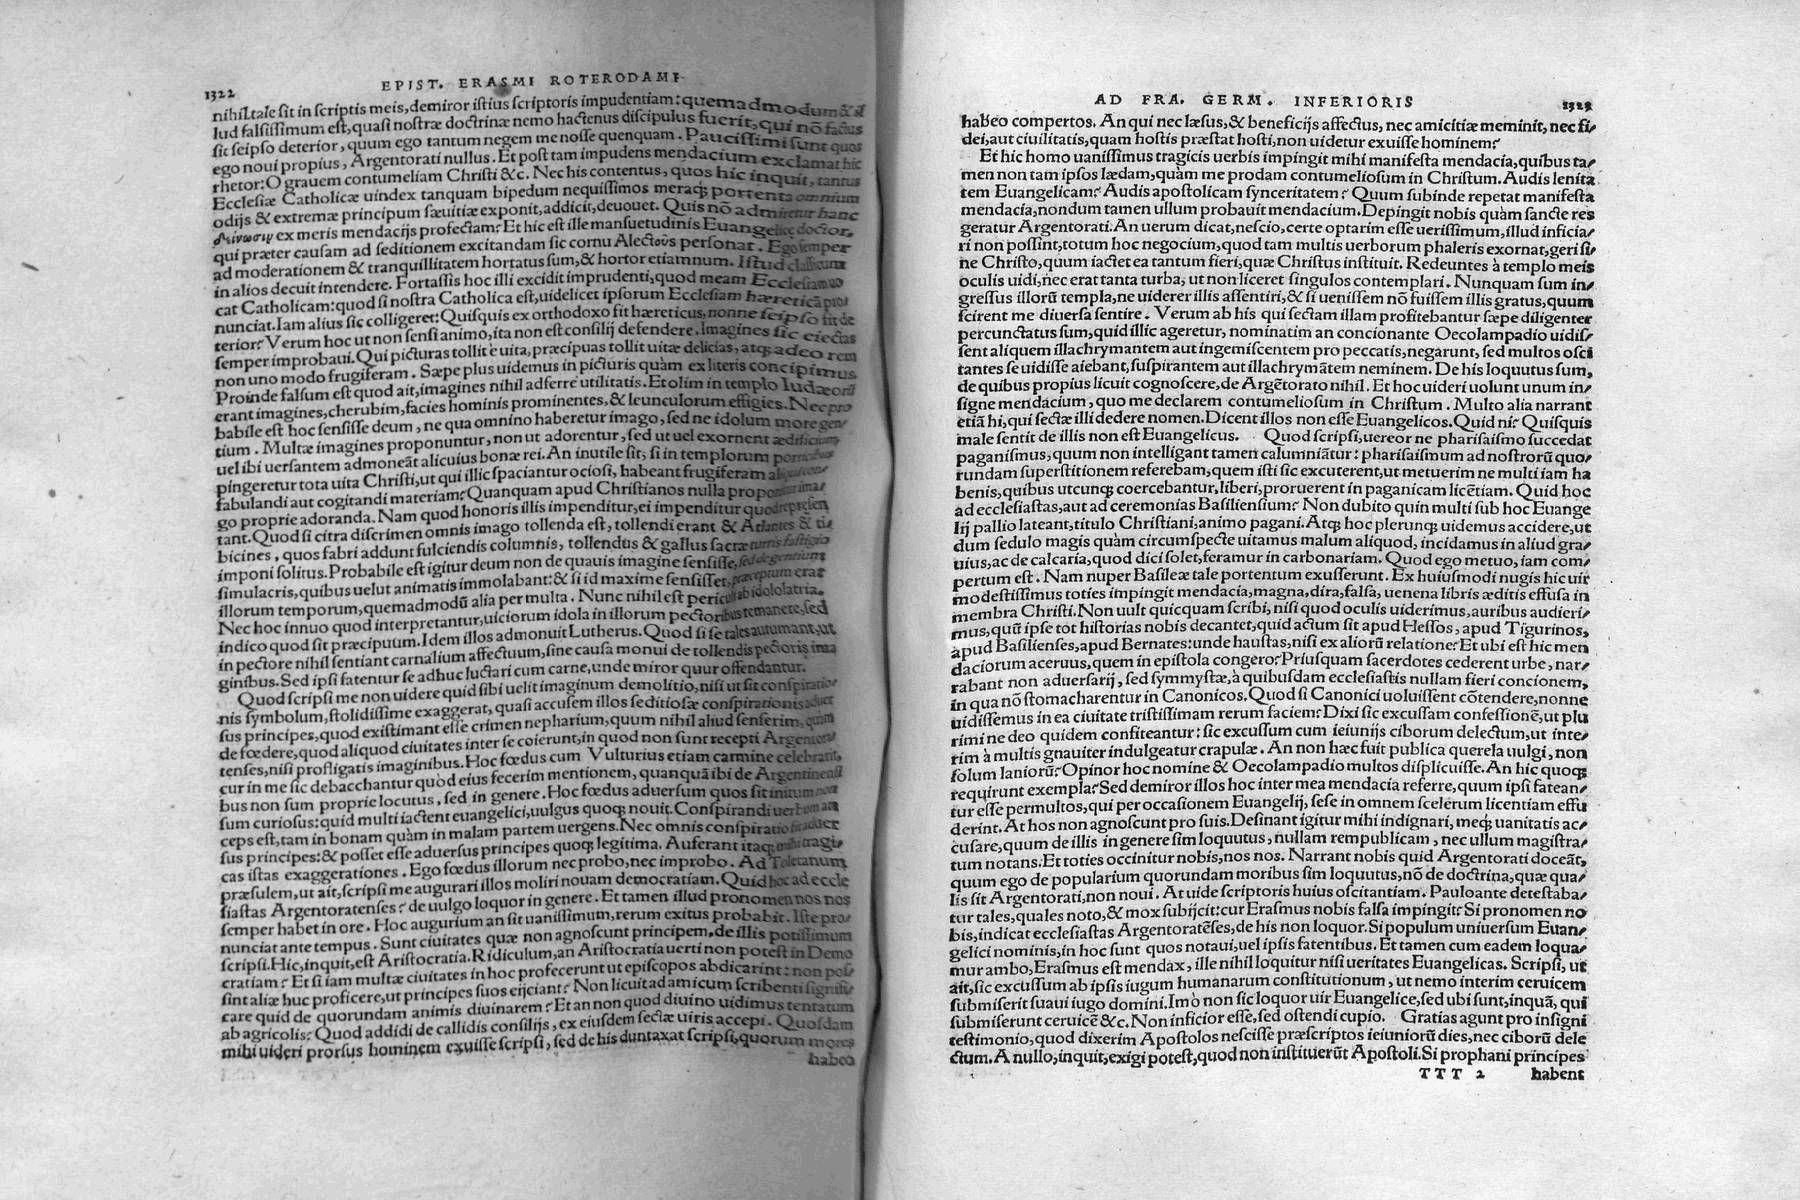 1322
EPIST. ERASMI ROTERODAMI
nihil tale sit in scriptis meis, demiror istius scriptoris impudentiam: quemadmodum & il
lud falsissimum est, quasi nostræ doctrinæ nemo hactenus discipulus fuerit, qui nō factus
sit seipso deterior, quum ego tantum negem me nosse quenquam. Paucissimi sunt quos
ego noui propius, Argentorati nullus. Et post tam impudens mendacium exclamat hic
rhetor: O grauem contumeliam Christi &c. Nec his contentus, quos hic inquit, tantus
Ecclesiæ Catholicæ uindex tanquam bipedum nequissimos meraq; portenta omnium
odijs & extremæ principum sæuitiæ exponit, addicit, deuouet. Quis nō admiretur hanc
δείνωσιν ex meris mendacijs profectam? Et hic est ille mansuetudinis Euangelicæ doctor,
qui præter causam ad seditionem excitandam sic cornu Alectoûs personat. Ego semper
ad moderationem & tranquillitatem hortatus sum, & hortor etiamnum. Istud classicum
in alios decuit intendere. Fortassis hoc illi excidit imprudenti, quod meam Ecclesiam uo
cat Catholicam: quod si nostra Catholica est, uidelicet ipsorum Ecclesiam hæreticā pro/
nunciat. Iam alius sic colligeret: Quisquis ex orthodoxo fit hæreticus, nonne seipso fit de
terior? Verum hoc ut non sensi animo, ita non est consilij defendere. Imagines sic eiectas
semper improbaui. Qui picturas tollit è uita, præcipuas tollit uitæ delicias, atq; adeo rem
non uno modo frugiferam. Sæpe plus uidemus in picturis quàm ex literis concipimus.
Proinde falsum est quod ait, imagines nihil adferre utilitatis. Et olim in templo Iudæorū
erant imagines, cherubim, facies hominis prominentes, & leunculorum effigies. Nec pro
babile est hoc sensisse deum, ne qua omnino haberetur imago, sed ne idolum more gen/
tium. Multæ imagines proponuntur, non ut adorentur, sed ut uel exornent ædificium,
uel ibi uersantem admoneāt alicuius bonæ rei. An inutile sit, si in templorum porticibus
pingeretur tota uita Christi, ut qui illic spaciantur ociosi, habeant frugiferam aliquam con/
fabulandi aut cogitandi materiam? Quanquam apud Christianos nulla proponitur ima/
go proprie adoranda. Nam quod honoris illis impenditur, ei impenditur quod repræsen
tant. Quod si citra discrimen omnis imago tollenda est, tollendi erant & Atlantes & ti/
bicines, quos fabri addunt fulciendis columnis, tollendus & gallus sacræ turris fastigio
imponi solitus. Probabile est igitur deum non de quauis imagine sensisse, sed de gentium
simulacris, quibus uelut animatis immolabant: & si id maxime sensisset, præceptum erat
illorum temporum, quemadmodū alia per multa. Nunc nihil est periculi ab idololatria.
Nec hoc innuo quod interpretantur, uiciorum idola in illorum pectoribus remanere, sed
indico quod sit præcipuum. Idem illos admonuit Lutherus. Quod si se tales autumant, ut
in pectore nihil sentiant carnalium affectuum, sine causa monui de tollendis pectoris ima
ginibus. Sed ipsi fatentur se adhuc luctari cum carne, unde miror quur offendantur.
Quod scripsi me non uidere quid sibi uelit imaginum demolitio, nisi ut sit conspiratio/
nis symbolum, stolidissime exaggerat, quasi accusem illos seditiosæ conspirationis aduer
sus principes, quod existimant esse crimen nepharium, quum nihil aliud senserim, quam
de fœdere, quod aliquod ciuitates inter se coierunt, in quod non sunt recepti Argentora/
tenses, nisi profligatis imaginibus. Hoc fœdus cum Vulturius etiam carmine celebrarit,
cur in me sic debacchantur quòd eius fecerim mentionem, quanquā ibi de Argentinensi
bus non sum proprie locutus, sed in genere. Hoc fœdus aduersum quos sit initum non
sum curiosus: quid multi iactent euangelici, uulgus quoq; nouit. Conspirandi uerbum an
ceps est, tam in bonam quàm in malam partem uergens. Nec omnis conspiratio fit aduer
sus principes: & posset esse aduersus principes quoq; legitima. Auferant itaq; mihi tragi/
cas istas exaggerationes. Ego fœdus illorum nec probo, nec improbo. Ad Toletanum
præsulem, ut ait, scripsi me augurari illos moliri nouam democratiam. Quid hoc ad eccle
siastas Argentoratenses? de uulgo loquor in genere. Et tamen illud pronomen nos nos
semper habet in ore. Hoc augurium an sit uanissimum, rerum exitus probabit. Iste pro/
nunciat ante tempus. Sunt ciuitates quæ non agnoscunt principem, de illis potissimum
scripsi. Hic, inquit, est Aristocratia. Ridiculum, an Aristocratia uerti non potest in Demo
cratiam? Et si iam multæ ciuitates in hoc profecerunt ut episcopos abdicarint: non pos/
sint aliæ huc proficere, ut principes suos eijciant? Non licuit ad amicum scribenti signifi/
care quid de quorundam animis diuinarem? Et an non quod diuino uidimus tentatum
ab agricolis? Quod addidi de callidis consilijs, ex eiusdem sectæ uiris accepi. Quosdam
mihi uideri prorsus hominem exuisse scripsi, sed de his duntaxat scripsi, quorum mores
habeo
AD FRA. GERM. INFERIORIS
1323
habeo compertos. An qui nec læsus, & beneficijs affectus, nec amicitiæ meminit, nec fi/
dei, aut ciuilitatis, quam hostis præstat hosti, non uidetur exuisse hominem?
Et hic homo uanissimus tragicis uerbis impingit mihi manifesta mendacia, quibus ta/
men non tam ipsos lædam, quàm me prodam contumeliosum in Christum. Audis lenita
tem Euangelicam? Audis apostolicam synceritatem? Quum subinde repetat manifesta
mendacia, nondum tamen ullum probauit mendacium. Depingit nobis quàm sancte res
geratur Argentorati. An uerum dicat, nescio, certe optarim esse uerissimum, illud inficia/
ri non possint, totum hoc negocium, quod tam multis uerborum phaleris exornat, geri si/
ne Christo, quum iactet ea tantum fieri, quæ Christus instituit. Redeuntes à templo meis
oculis uidi, nec erat tanta turba, ut non liceret singulos contemplari. Nunquam sum in/
gressus illorū templa, ne uiderer illis assentiri, & si uenissem nō fuissem illis gratus, quum
scirent me diuersa sentire. Verum ab his qui sectam illam profitebantur sæpe diligenter
percunctatus sum, quid illic ageretur, nominatim an concionante Oecolampadio uidis/
sent aliquem illachrymantem aut ingemiscentem pro peccatis, negarunt, sed multos osci
tantes se uidisse aiebant, suspirantem aut illachrymātem neminem. De his loquutus sum,
de quibus propius licuit cognoscere, de Argētorato nihil. Et hoc uideri uolunt unum in/
signe mendacium, quo me declarem contumeliosum in Christum. Multo alia narrant
etiā hi, qui sectæ illi dedere nomen. Dicent illos non esse Euangelicos. Quid ni? Quisquis
male sentit de illis non est Euangelicus. Quod scripsi, uereor ne pharisaismo succedat
paganismus, quum non intelligant tamen calumniātur: pharisaismum ad nostrorū quo/
rundam superstitionem referebam, quem isti sic excuterent, ut metuerim ne multi iam ha
benis, quibus utcunq; coercebantur, liberi, proruerent in paganicam licētiam. Quid hoc
ad ecclesiastas, aut ad ceremonias Basiliensium? Non dubito quin multi sub hoc Euange
lij pallio lateant, titulo Christiani, animo pagani. Atq; hoc plerunq; uidemus accidere, ut
dum sedulo magis quàm circumspecte uitamus malum aliquod, incidamus in aliud gra/
uius, ac de calcaria, quod dici solet, feramur in carbonariam. Quod ego metuo, iam com/
pertum est. Nam nuper Basileæ tale portentum exusserunt. Ex huiusmodi nugis hic uir
modestissimus toties impingit mendacia, magna, dira, falsa, uenena libris æditis effusa in
membra Christi. Non uult quicquam scribi, nisi quod oculis uiderimus, auribus audieri/
mus, quū ipse tot historias nobis decantet, quid actum sit apud Hessos, apud Tigurinos,
apud Basilienses, apud Bernates: unde haustas, nisi ex aliorū relatione? Et ubi est hic men
daciorum aceruus, quem in epistola congero? Priusquam sacerdotes cederent urbe, nar/
rabant non aduersarij, sed symmystæ, à quibusdam ecclesiastis nullam fieri concionem,
in qua nō stomacharentur in Canonicos. Quod si Canonici uoluissent cōtendere, nonne
uidissemus in ea ciuitate tristissimam rerum faciem? Dixi sic excussam confessionē, ut plu
rimi ne deo quidem confiteantur: sic excussum cum ieiunijs ciborum delectum, ut inte/
rim à multis gnauiter indulgeatur crapulæ. An non hæc fuit publica querela uulgi, non
solum laniorū? Opinor hoc nomine & Oecolampadio multos displicuisse. An hic quoq;
requirunt exempla? Sed demiror illos hoc inter mea mendacia referre, quum ipsi fatean/
tur esse permultos, qui per occasionem Euangelij, sese in omnem scelerum licentiam effu
derint. At hos non agnoscunt pro suis. Desinant igitur mihi indignari, meq; uanitatis ac/
cusare, quum de illis in genere sim loquutus, nullam rempublicam, nec ullum magistra/
tum notans. Et toties occinitur nobis, nos nos. Narrant nobis quid Argentorati doceāt,
quum ego de popularium quorundam moribus sim loquutus, nō de doctrina, quæ qua/
lis sit Argentorati, non noui. At uide scriptoris huius oscitantiam. Pauloante detestaba/
tur tales, quales noto, & mox subijcit: cur Erasmus nobis falsa impingit? Si pronomen no
bis, indicat ecclesiastas Argentoratēses, de his non loquor. Si populum uniuersum Euan/
gelici nominis, in hoc sunt quos notaui, uel ipsis fatentibus. Et tamen cum eadem loqua/
mur ambo, Erasmus est mendax, ille nihil loquitur nisi ueritates Euangelicas. Scripsi, ut
ait, sic excussum ab ipsis iugum humanarum constitutionum, ut nemo interim ceruicem
submiserit suaui iugo domini. Imò non sic loquor uir Euangelice, sed ubi sunt, inquā, qui
submiserunt ceruicē &c. Non inficior esse, sed ostendi cupio. Gratias agunt pro insigni
testimonio, quod dixerim Apostolos nescisse præscriptos ieiuniorū dies, nec ciborū dele
ctum. A nullo, inquit, exigi potest, quod non instituerūt Apostoli. Si prophani principes
TTT 2
habent